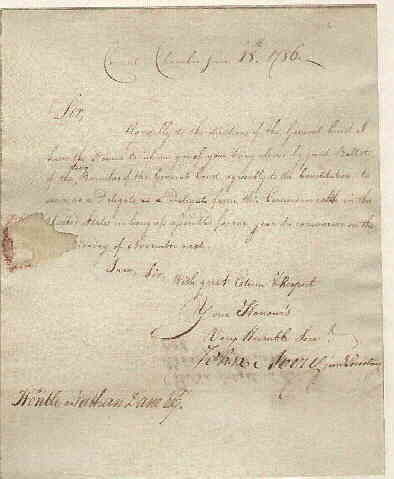 Council Chamber June 18th. 1786.
Sir,
Agreeably to the direction of the General Court I
have the Honor to inform you of your being chosen by joint Ballot
of the two Branches of the General Court, agreeably to the Constitution, to
serve as a Delegate from this Commonwealth in the
United States in Congress assembled for one year to commence on the
Monday of November next.
I am, Sir, With great Esteem & Respect
Your Honour's
Very Humble Serv.t
John Avery jun Secretary
Honble Nathan Dane Esq.